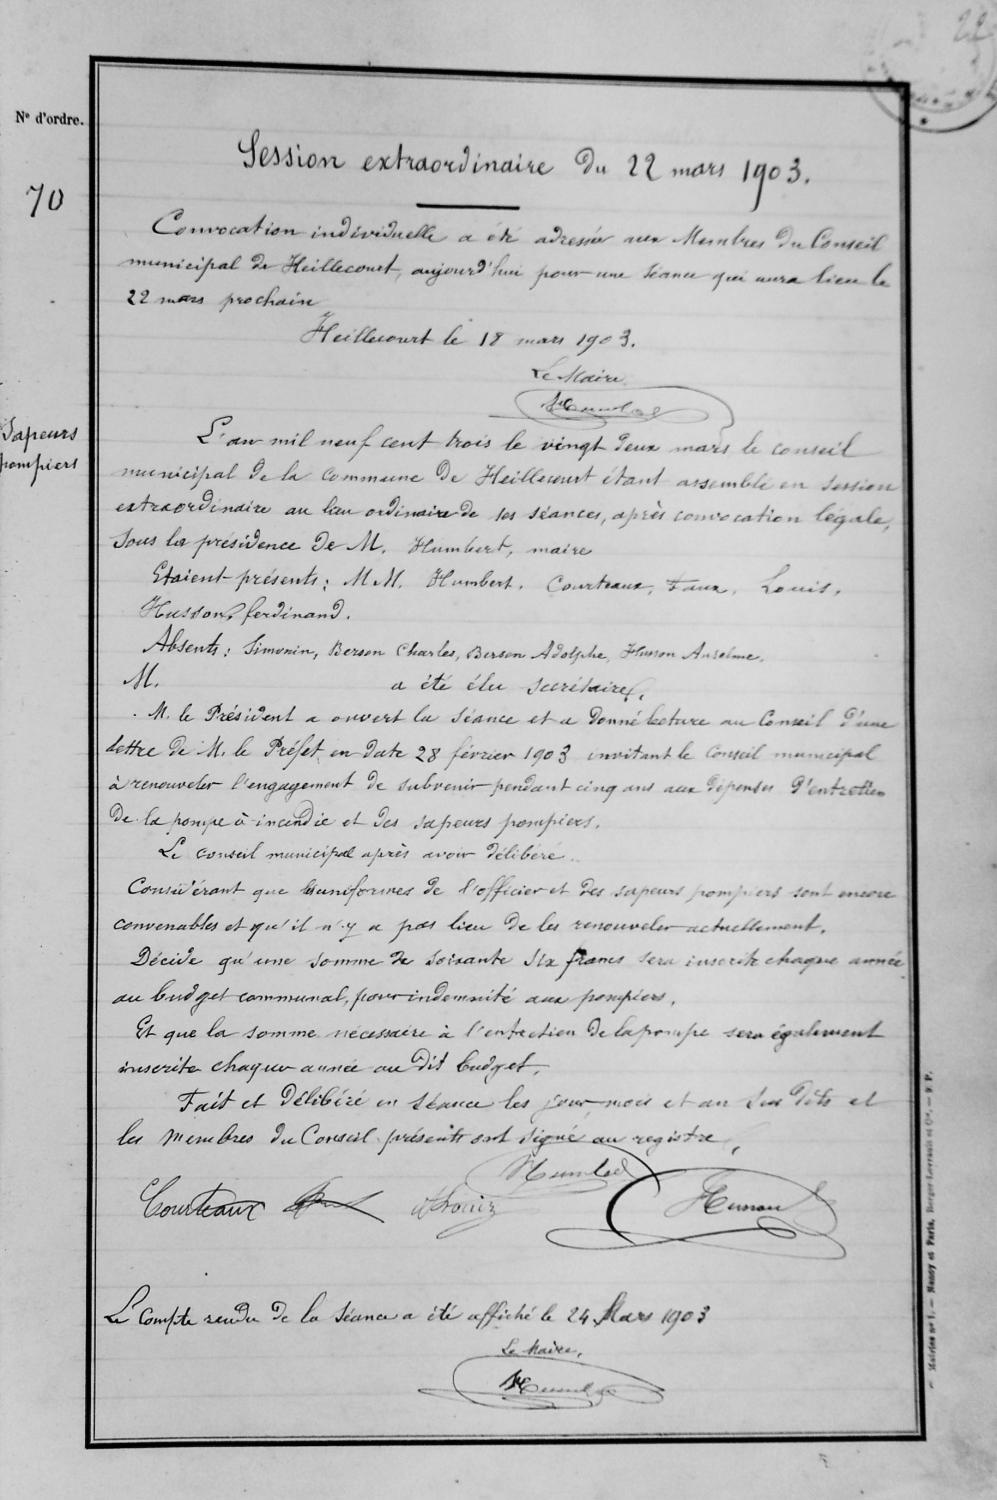 22
N° d'ordre.
Session extraordinaire du 22 mars 1903.
70
Convocation individuelle a été adressée aux Membres du Conseil
municipal de Heillecourt, aujourd'hui pour une séance qui aura lieu le
22 mars prochain
Heillecourt le 18 mars 1903.
Le Maire
Humbert
Sapeurs
pompiers
L'an mil neuf cent trois le vingt deux mars le conseil
municipal de la commune de Heillecourt étant assemblé en session
extraordinaire au lieu ordinaire de ses séances, après convocation légale,
sous la présidence de M. Humbert, maire
Etaient présents: M.M. Humbert, Courteaux, Faux, Louis,
Husson ferdinand.
Absents: Simonin, Berson Charles, Berson Adolphe, Husson Anselme.
M. a été élu secrétaire.
M. le Président a ouvert la séance et a donné lecture au Conseil d'une
lettre de M. le Préfet en date 28 février 1903 invitant le Conseil municipal
à renouveler l'engagement de subvenir pendant cinq ans aux dépenses d'entretien
de la pompe à incendie et des sapeurs pompiers.
Le conseil municipal après avoir délibéré.
Considérant que les uniformes de l'officier et des sapeurs pompiers sont encore
convenables et qu'il n'y a pas lieu de les renouveler actuellement.
Décide qu'une somme de soixante six francs sera inscrite chaque année
au budget communal, pour indemnité aux pompiers.
Et que la somme nécessaire à l'entretien de la pompe sera également
inscrite chaque année au dit budget.
Fait et délibéré en séance les jour, mois et an sus dits et
les membres du Conseil présents ont signé au registre.
Humbert
Courteaux Louis Husson
Le Compte rendu de la séance a été affiché le 24 Mars 1903
Le Maire,
Humbert
Mairies n° 1. — Nancy et Paris, Berger-Levrault et Cie. — 9 P.